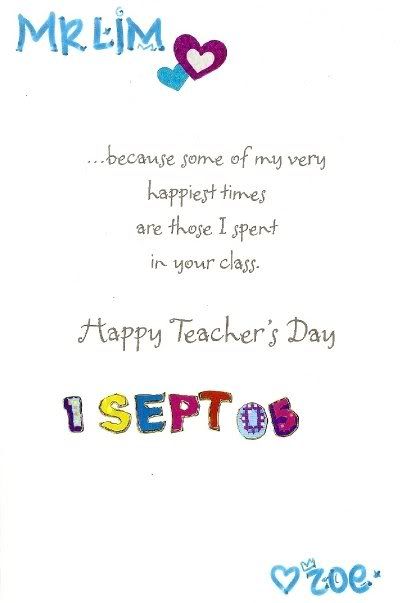 MR LIM
...because some of my very
happiest times
are those I spent
in your class.
Happy Teacher's Day
1 SEPT 05
zoe